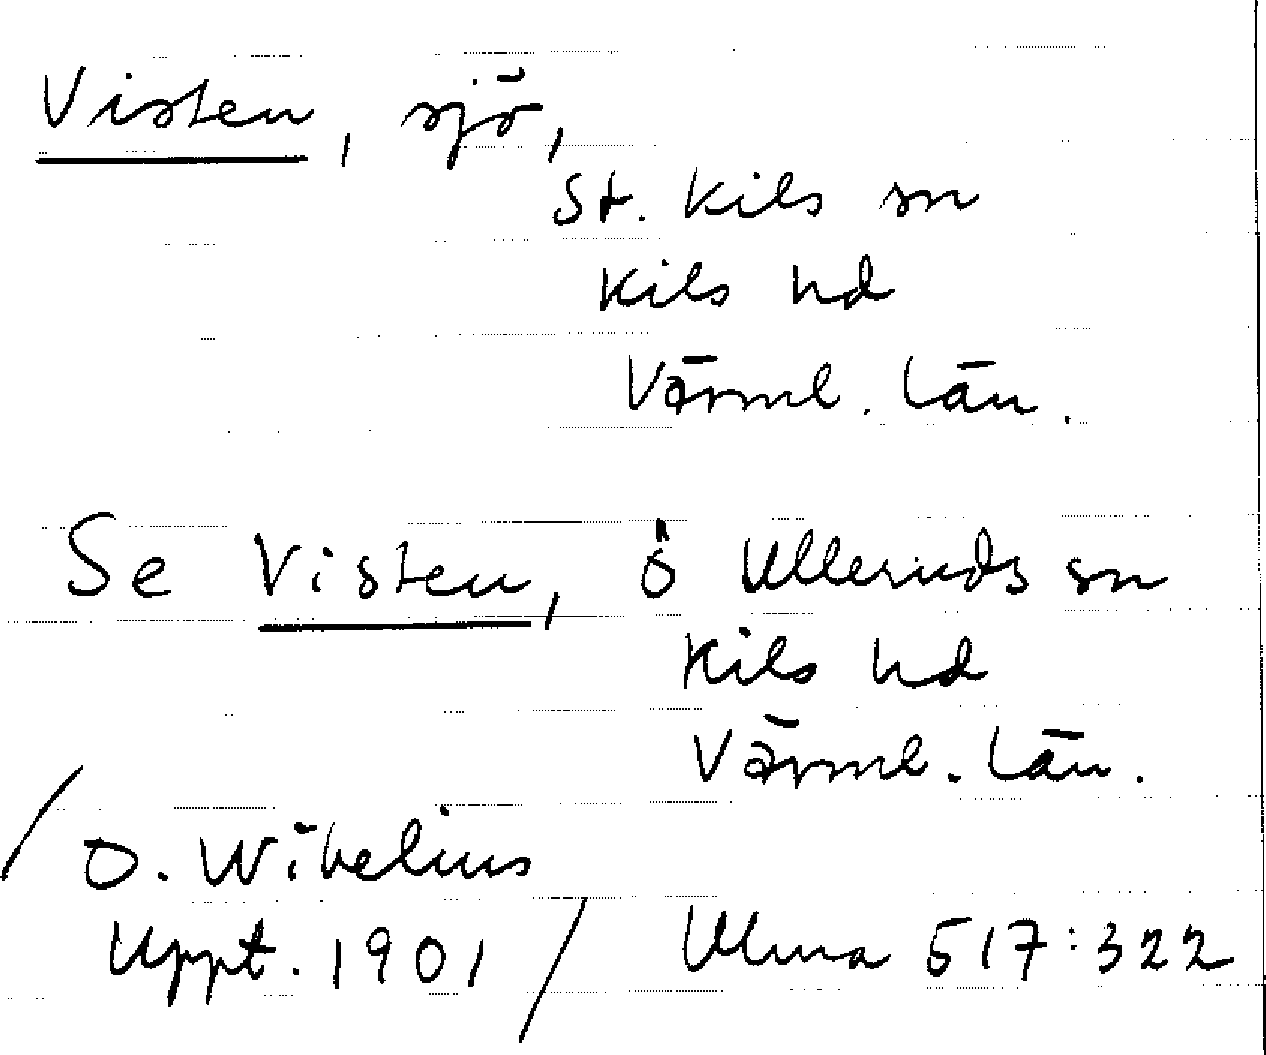 Visten, sjö,
St. Kils sn
Kils hd
Värml. län.
Se Visten, Ö Ulleruds sn
Kils hd
Värml. län.
/ O. Wibelius
Uppt. 1901 / Ulma 517:322